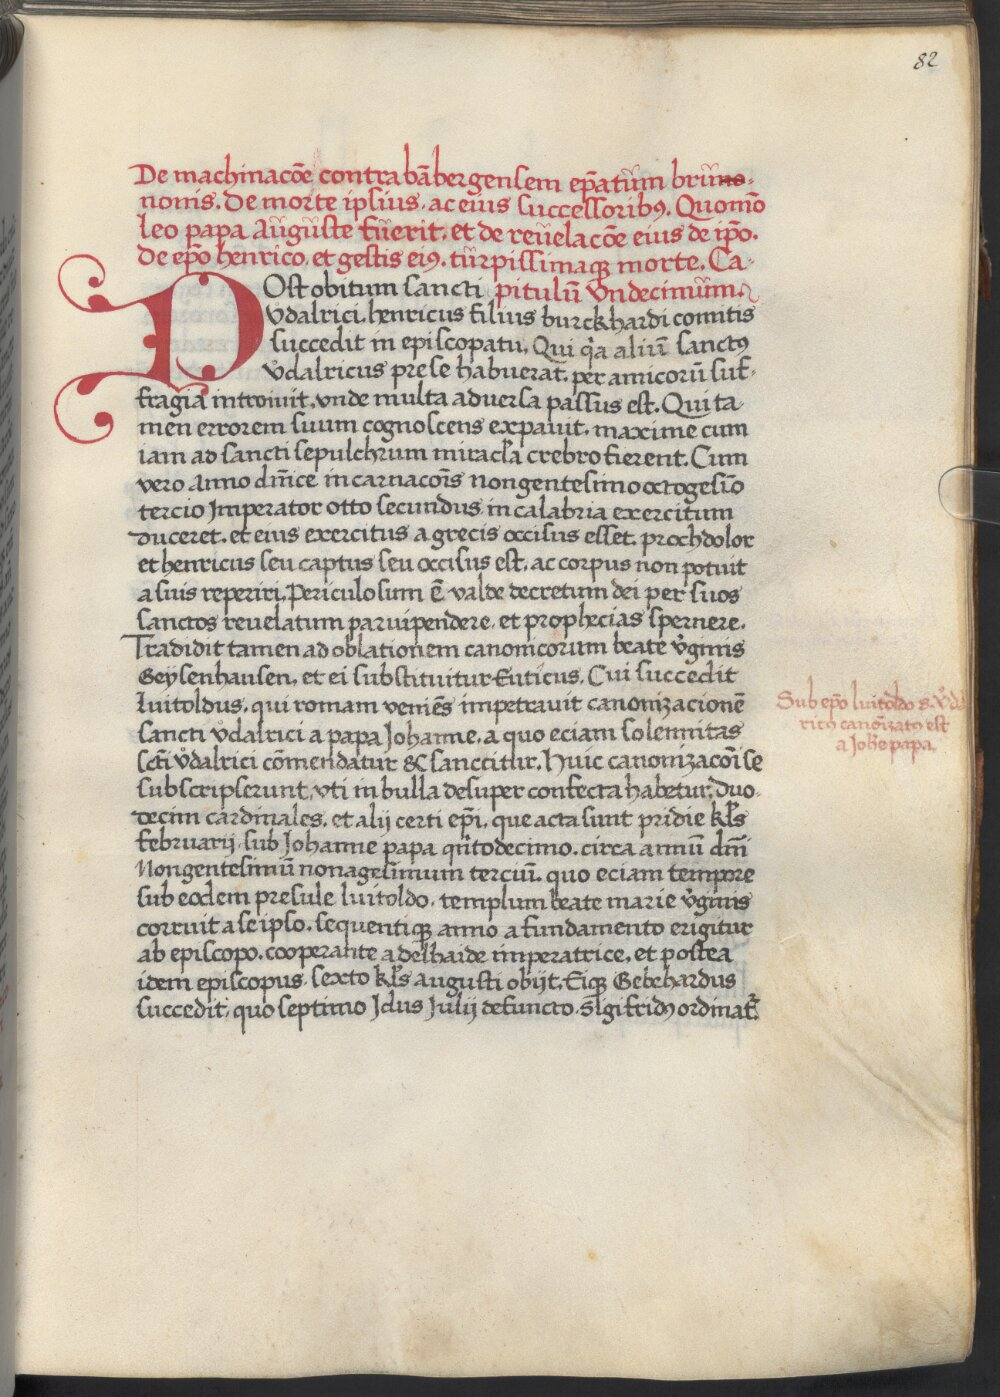 82
De machinacōe contra bābergensem ep̄atūm brūno-
nonis. De morte ipsius. ac eius successoribꝫ. Quomō
leo papa Aŭguste fŭerit. et de reŭelacōe eius de ip̄o.
De ep̄o henrico. et gestis eiꝰ. tŭrpissimaqꝫ morte. Ca-
POst obitum sancti pitulū Vndecimŭm.
Vͦdalrici. henricus filius burckhardi comitis
succedit in episcopatu. Qui qͥa aliū sanctꝰ
Vͦdalricus pre se habuerat. per amicorū suf-
fragia introiuit. vnde multa aduersa passus est. Qui ta-
men errorem suum cognoscens expauit. maxime cum
iam ad sancti sepulchrum miracl̄a crebro fierent. Cum
vero Anno dn̄ice incarnacōis nongentesimo octogesīo
tercio Imperator otto secundus in calabria exercitum
duceret. et eius exercitus a grecis occisus esset. prochdolor
et henricus seu captus seu occisus est. ac corpus non potuit
a suis reperiri. Periculosum ē valde decretum dei per suos
sanctos reuelatum paruipendere. et prophecias spernere.
Tradidit tamen ad oblationem canonicorum beate v̄ginis
Geysenhausen. et ei substituitur Euticus. Cui succedit
Luitoldus. qui romam veniēs impetrauit canonizacionē
sancti vͦdalrici a papa Johanne. a quo eciam solemnitas
sc̄ti vͦdalrici cōmendatur &c sanctitur. Huic canonizacōi se
subscripserunt. vti in bulla desuper confecta habetur. duo-
decim cardinales. et alij certi ep̄i. que acta sunt pridie kl̄s
februarij. sub Johanne papa qŭitodecimo. circa annū dn̄i
Nongentesimū nonagesimum terciū. quo eciam tempore
sub eodem presule luitoldo. templum beate marie v̄ginis
corruit a se ipso. sequentiqꝫ anno a fundamento erigitur
ab episcopo. cooperante adelhaide imperatrice. et postea
idem episcopus sexto kl̄s augusti obijt. Eiqꝫ Gebehardus
succedit. quo septimo Idus Julij defuncto. Sigifridꝰ ordinat᷑.
Sub ep̄o luitoldo s. vͦdal
ricꝰ canōizatꝰ est
a Joh̄e papa.